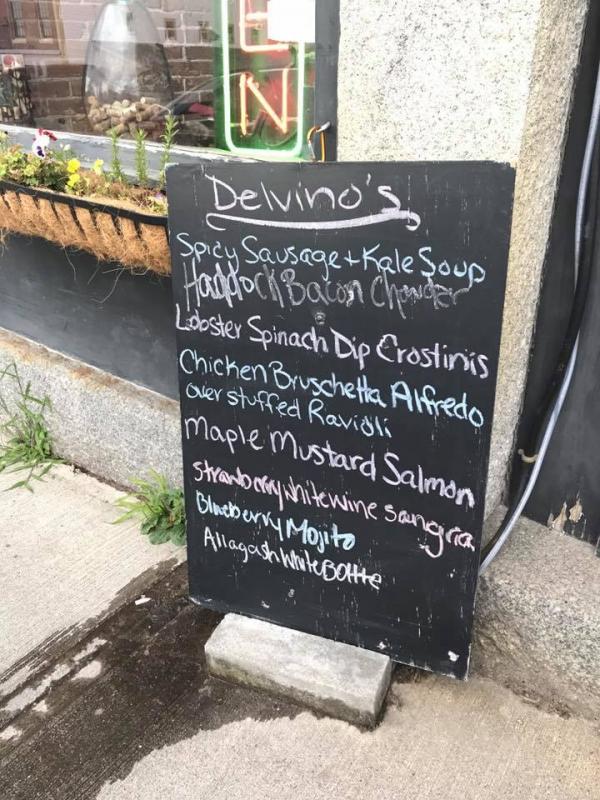 EN
Delvino's
Spicy Sausage + Kale Soup
Haddock Bacon Chowder
Lobster Spinach Dip Crostinis
Chicken Bruschetta Alfredo
over stuffed Ravioli
Maple Mustard Salmon
Strawberry white wine sangria
Blueberry Mojito
Allagash White Bottle